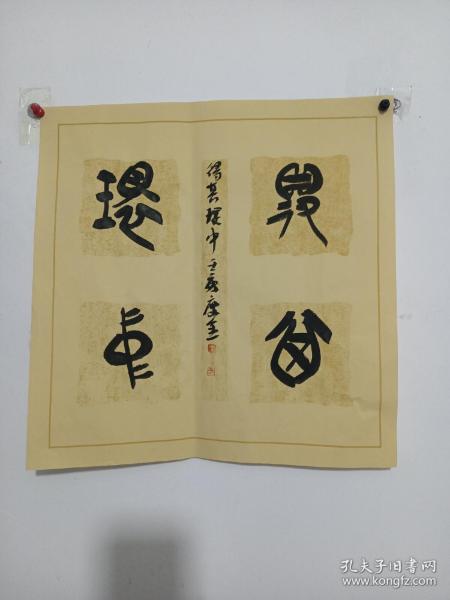 得其
環中
得其環中
孔夫子旧书网
www.kongfz.com